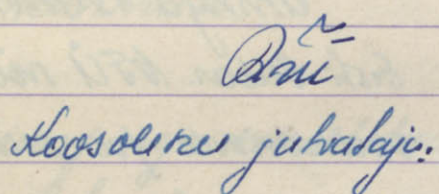 Koosoleku juhataja: